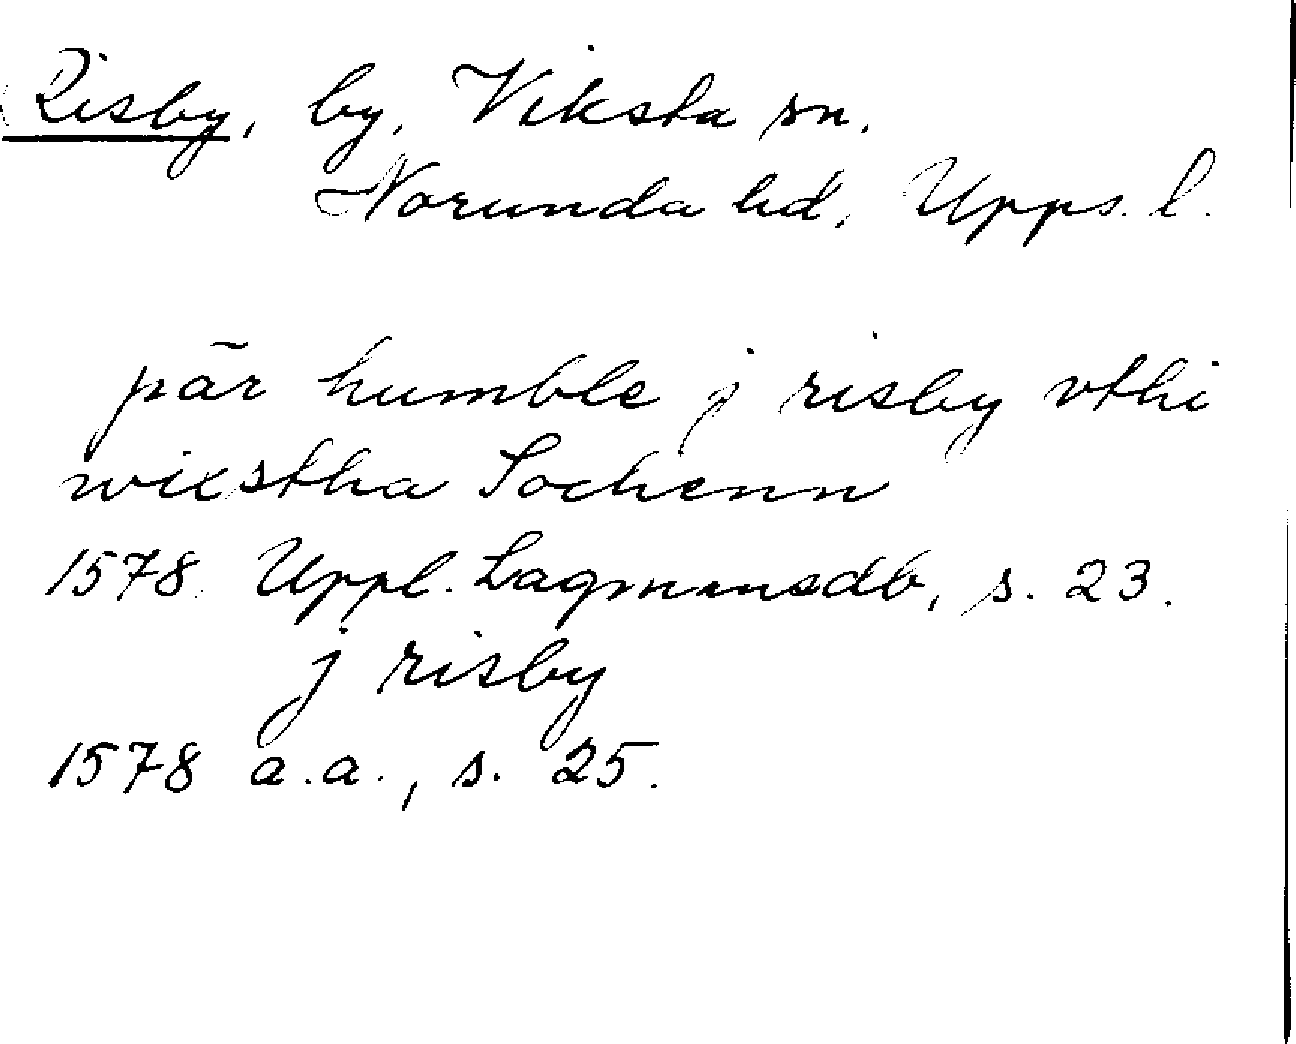 Risby, by, Viksta sn.
Norunda hd, Upps. l.
pär humble j risby vthi
wixstha Sochenn
1578. Uppl. Lagmansdb, s. 23.
j risby
1578 a.a., s. 25.